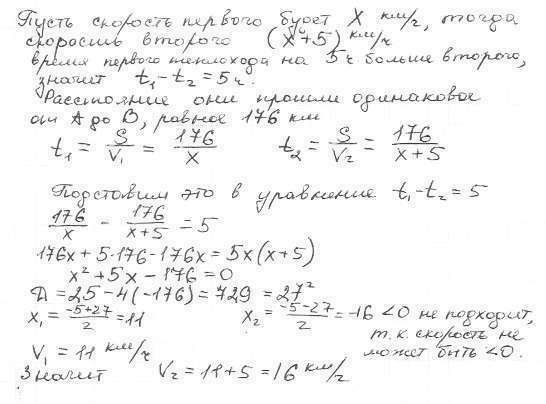 Пусть скорость первого будет X км/г, тогда
скорость второго (x+5) км/ч
время первого теплохода на 5ч больше второго,
значит t₁ - t₂ = 5ч.
Расстояние они прошли одинаковое
от A до B, равное 176 км
t₁ = S/V₁ = 176/x t₂ = S/V₂ = 176/(x+5)
Подставим это в уравнение t₁ - t₂ = 5
176/x - 176/(x+5) = 5
176x + 5·176 - 176x = 5x(x+5)
x² + 5x - 176 = 0
Д = 25 - 4(-176) = 729 = 27²
x₁ = (-5+27)/2 = 11 x₂ = (-5-27)/2 = -16 <0 не подходит,
т.к. скорость не
может быть <0.
V₁ = 11 км/ч
Значит V₂ = 11+5 = 16 км/г